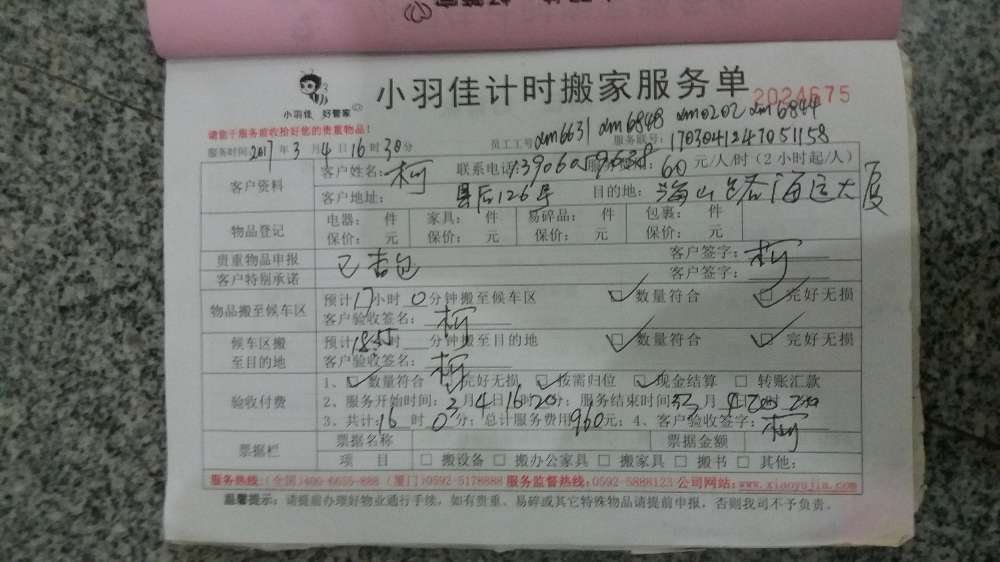 小羽佳计时搬家服务单
2024675
小羽佳 好管家
请您于服务前收拾好您的贵重物品！
员工工号: xm6631 xm6848 xm0202 xm6844
服务时间: 2017年3月4日16时30分 服务联号: 1703041247051158
客户资料 客户姓名: 柯 联系电话: 服务价格: 60元/人/时(2小时起/人)
客户地址: 县后126号 目的地: 海山路海运大厦
物品登记 电器: 件 家具: 件 易碎品: 件 包裹: 件
保价: 元 保价: 元 保价: 元 保价: 元
贵重物品申报 已告包 客户签字: 柯
客户特别承诺 客户签字:
物品搬至候车区 预计17小时0分钟搬至候车区 数量符合 完好无损
客户验收签名: 柯
候车区搬至目的地 预计18时55分钟搬至目的地 数量符合 完好无损
客户验收签名: 柯
验收付费 1、数量符合 完好无损 按需归位 现金结算 转账汇款
2、服务开始时间: 3月4日16时20分; 服务结束时间: 月 日 时
3、共计: 16时0分; 总计服务费用960元; 4、客户验收签字: 柯
票据栏 票据名称 票据金额
项目 搬设备 搬办公家具 搬家具 搬书 其他:
服务热线:(全国)400-6655-888 (厦门)0592-5178888 服务监督热线:0592-5888123 公司网站:www.xiaoyujia.com
温馨提示: 请提前办理好物业通行手续, 如有贵重、易碎或其它特殊物品请提前申报, 否则我司不予负责。